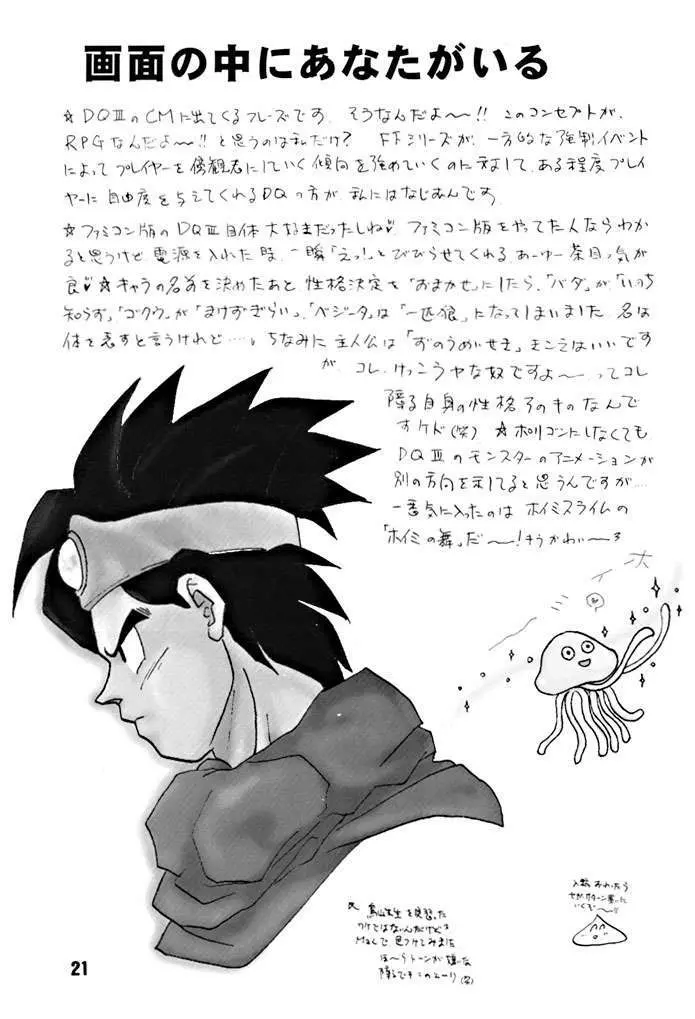 画面の中にあなたがいる
☆DQⅢのCMに出てくるフレーズです。そうなんだよ〜!! このコンセプトが、
RPGなんだよ〜!! と思うのは私だけ? FFシリーズが、一方的な強制イベント
によってプレイヤーを傍観者にしていく傾向を強めていくのに対して、ある程度プレイ
ヤーに自由度を与えてくれるDQの方が、私にはなじめんです。
☆ファミコン版のDQⅢ自体大好きだったしね♡ ファミコン版をやってた人ならわか
ると思うけど、電源を入れた時、一瞬「えっ!」とびびらせてくれる、あーゆー茶目っ気が
良♡ ☆キャラの名前を決めたあと、性格決定を「おまかせ」にしたら、「バダ」が「いのち
知らず」「ゴクウ」が「まけずぎらい」、「ベジータ」は「一匹狼」になってしまいました。名は
体を表すと言うけれど……。ちなみに主人公は「ずのうめいせき」。きこえはいいです
が、コレ、けっこうヤな奴ですよ〜ってコレ
障る自身の性格そのものなんで
すケド(笑) ☆ポリゴンにしなくても
DQⅢのモンスターのアニメーションが
別の方向を示してると思うんですが……
一番気に入ったのは ホイミスライムの
「ホイミの舞」だ〜!チョウかわい〜
ホイ
☆ 鳥山先生を
ワケではないんだけど
Macで色つけてみました
トーンが
障るです (笑)
21